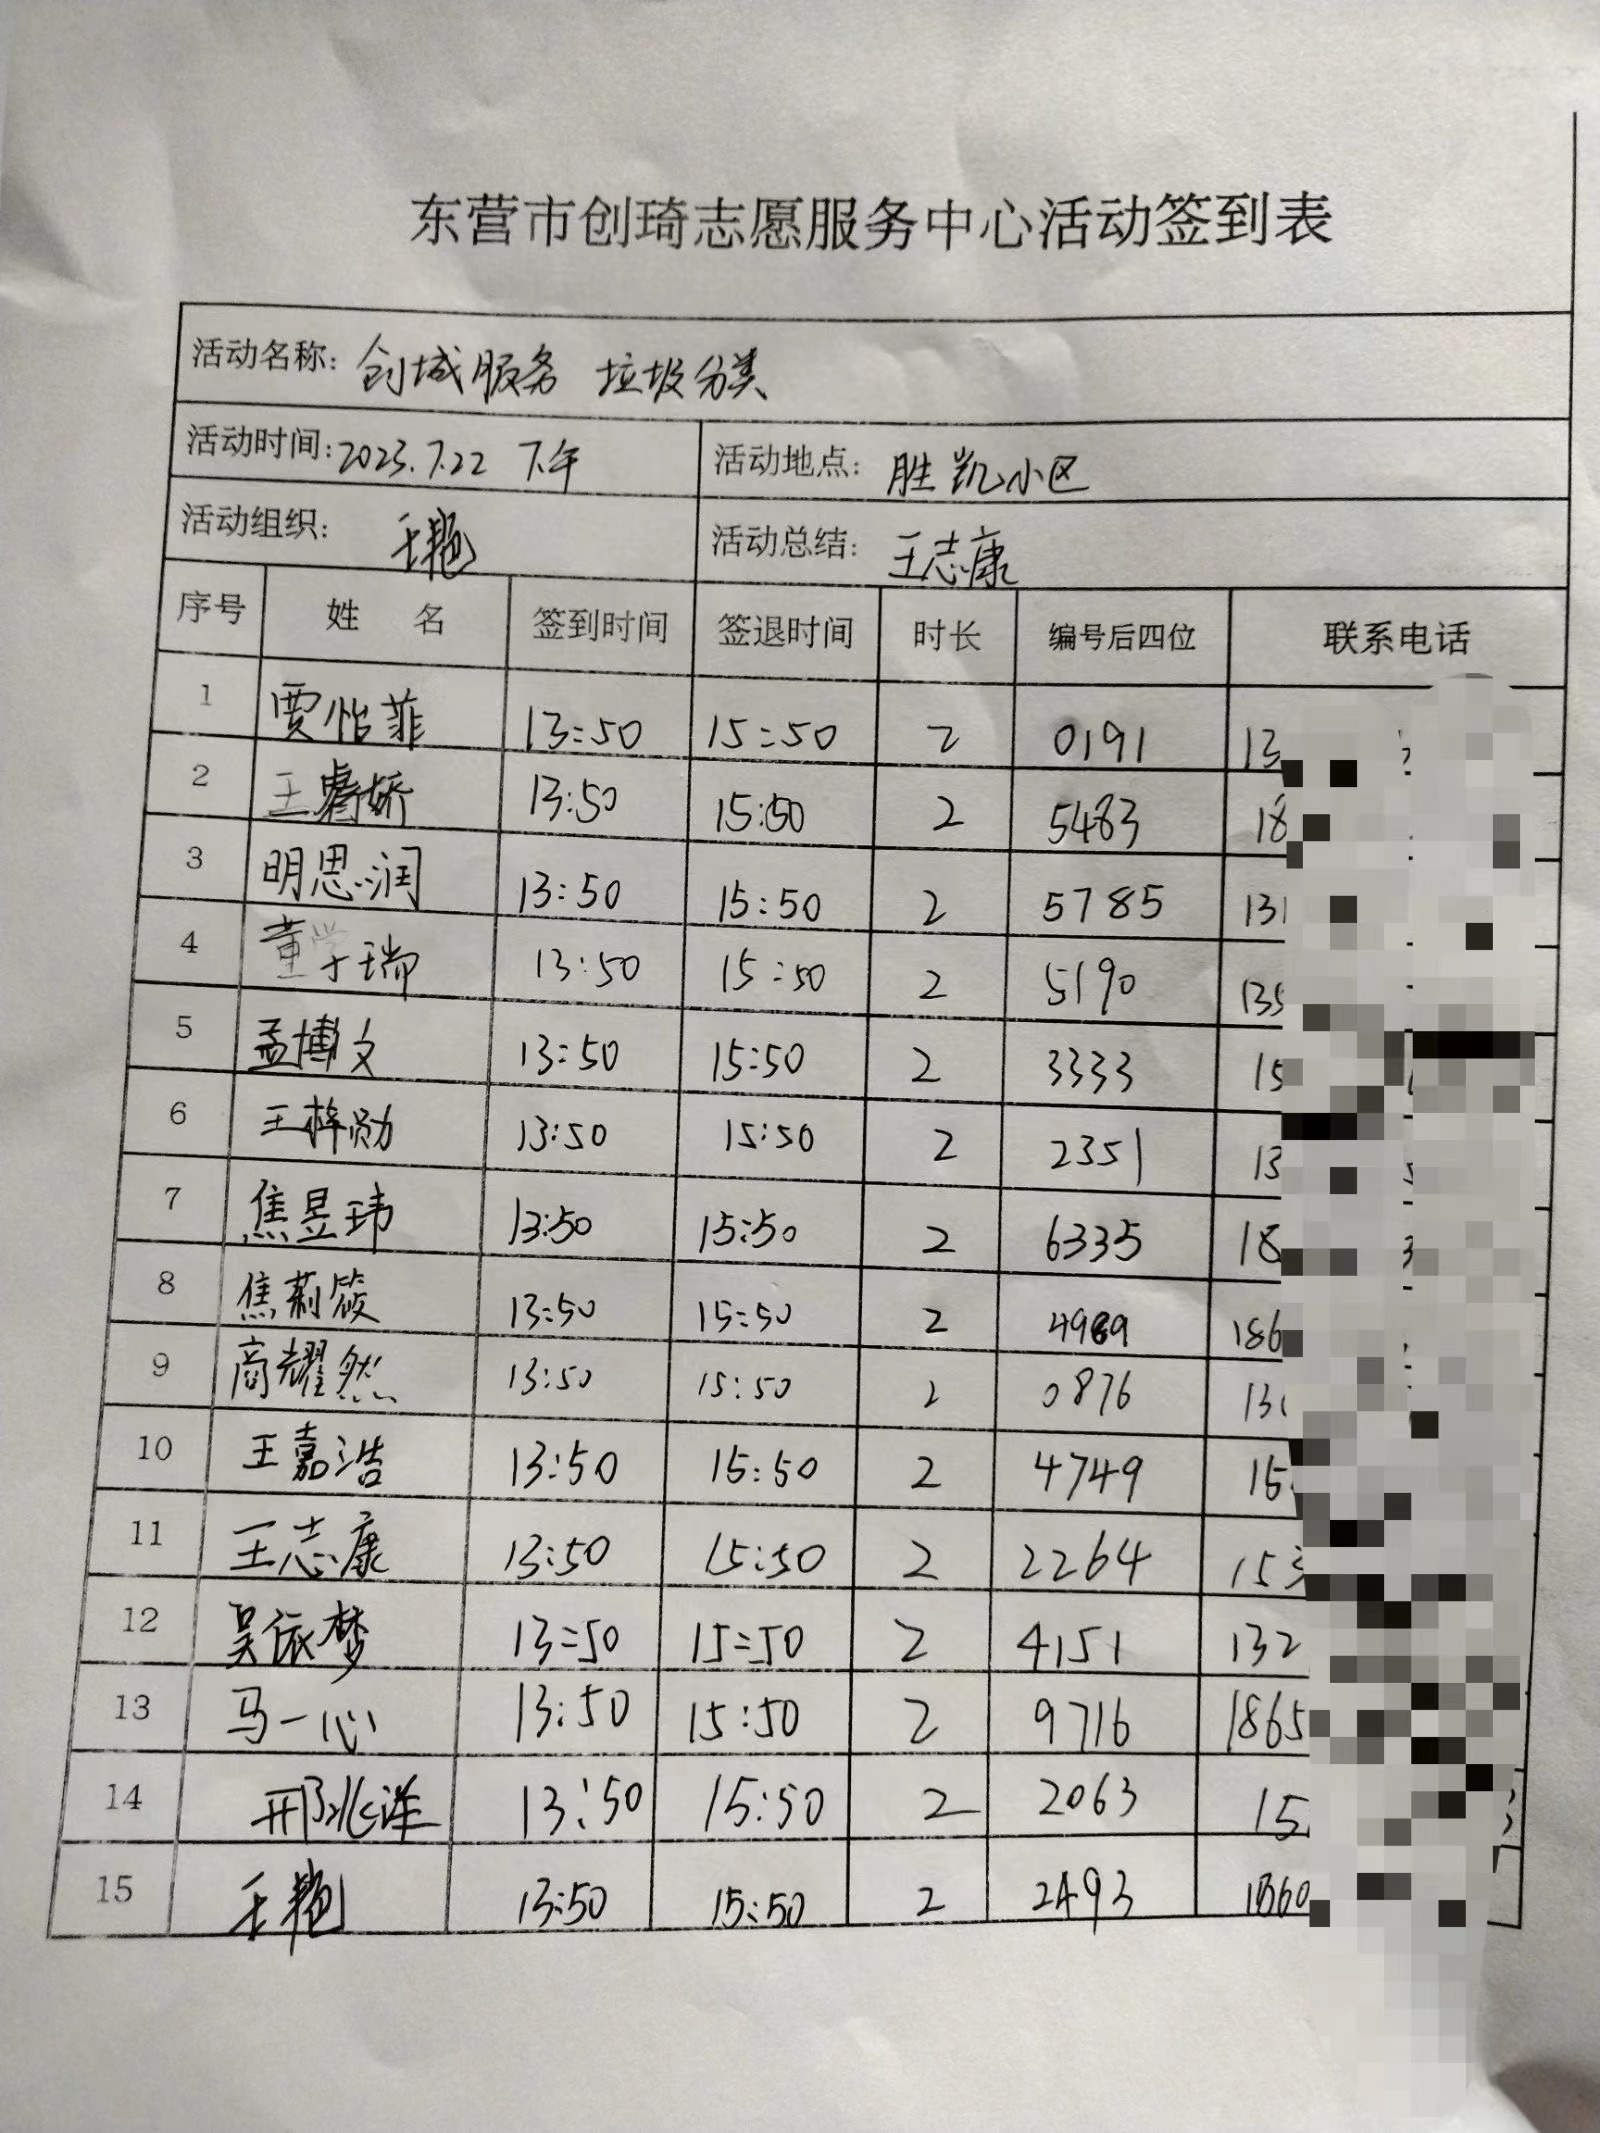 东营市创琦志愿服务中心活动签到表
活动名称: 创城服务 垃圾分类
活动时间: 2023.7.22 下午 活动地点: 胜凯小区
活动组织: 王艳 活动总结: 王志康
序号 姓 名 签到时间 签退时间 时长 编号后四位 联系电话
1 贾怡菲 13:50 15:50 2 0191 13
2 王睿娇 13:50 15:50 2 5483 18
3 明思润 13:50 15:50 2 5785 131
4 董学瑞 13:50 15:50 2 5190 135
5 孟博文 13:50 15:50 2 3333 15
6 王梓勋 13:50 15:50 2 2351 13
7 焦昱玮 13:50 15:50 2 6335 18
8 焦莉筱 13:50 15:50 2 4989 186
9 商耀然 13:50 15:50 2 0876 13
10 王嘉浩 13:50 15:50 2 4749 15
11 王志康 13:50 15:50 2 2264 153
12 吴依梦 13:50 15:50 2 4151 132
13 马一心 13:50 15:50 2 9716 1865
14 邢兆洋 13:50 15:50 2 2063 15
15 王艳 13:50 15:50 2 2493 1860